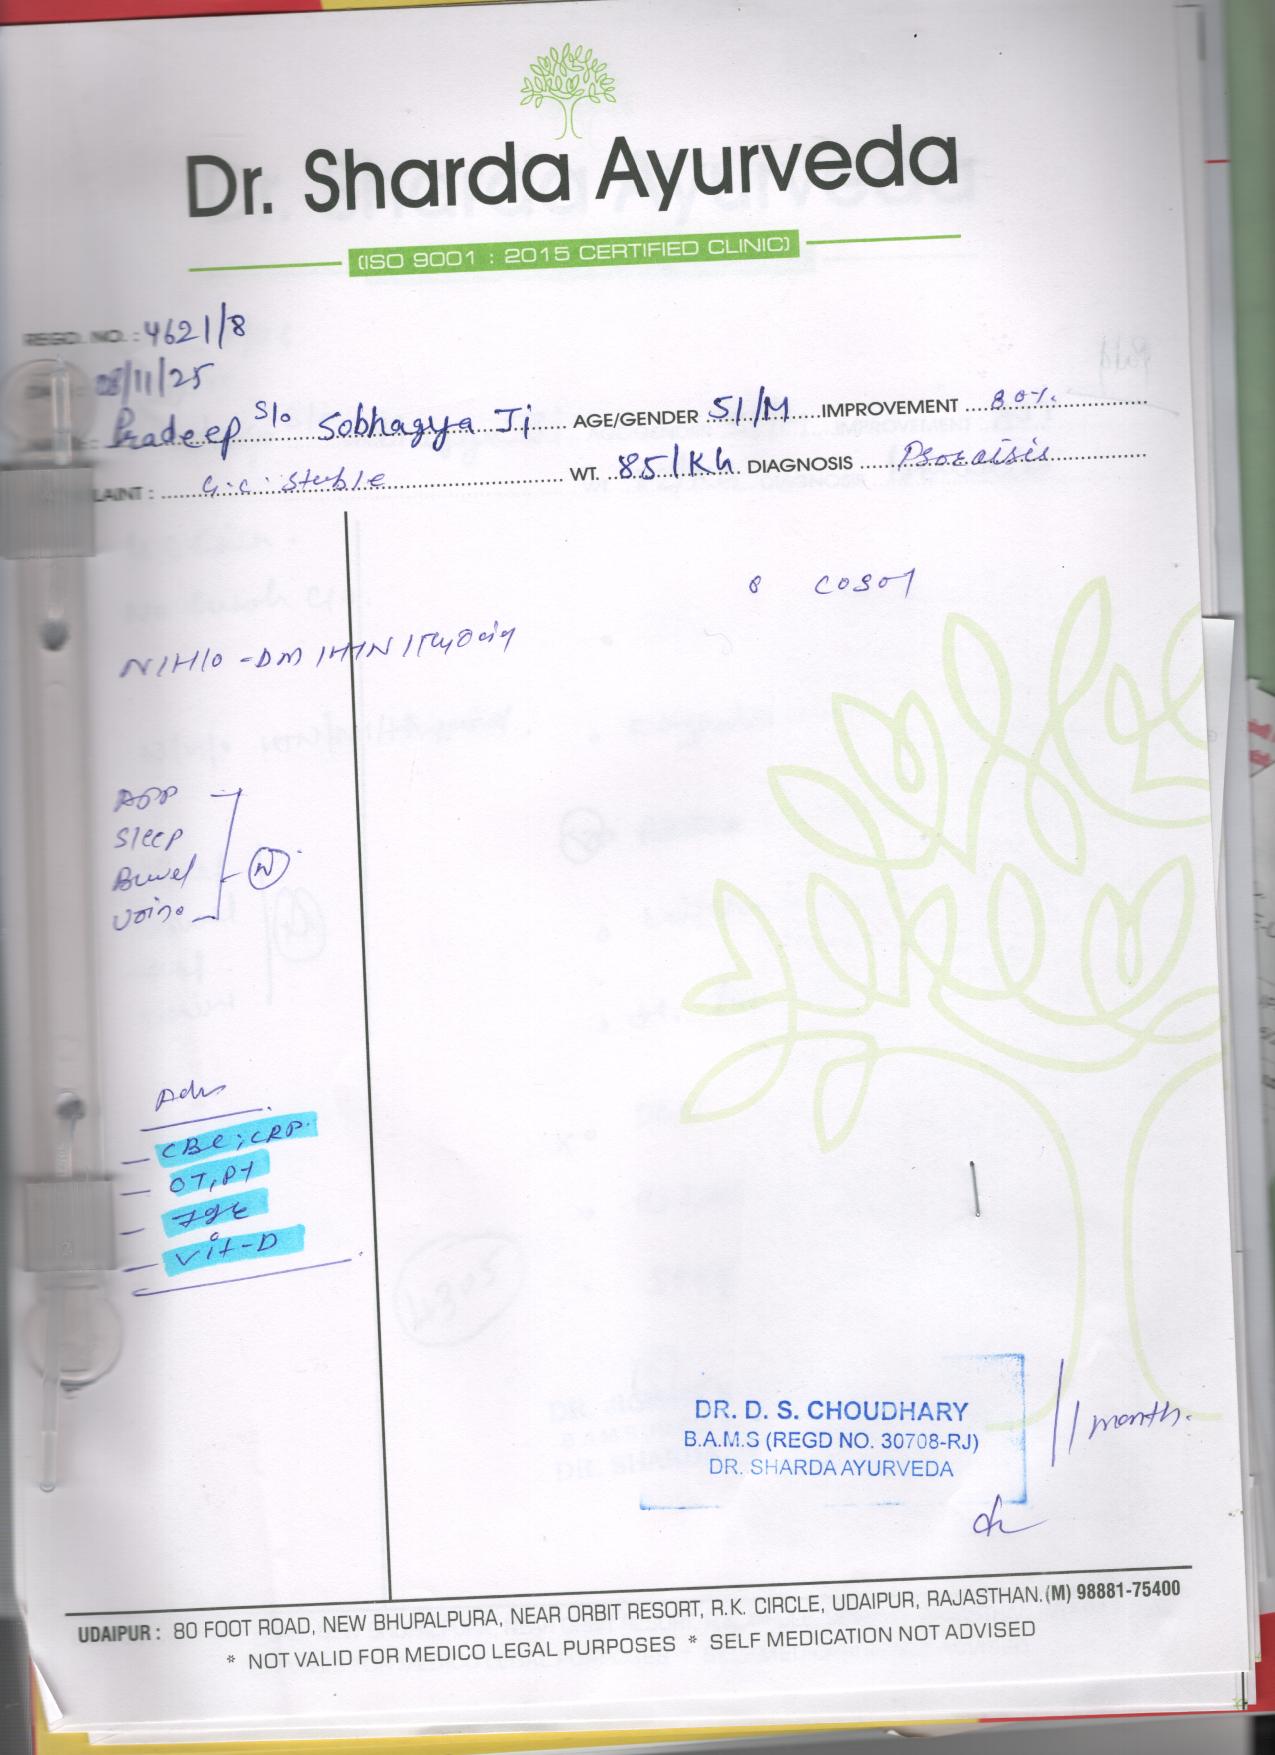 Dr. Sharda Ayurveda
(ISO 9001 : 2015 CERTIFIED CLINIC)
REGD. NO. : 4621/8
08/11/25
Pradeep S/o Sobhagya Ji AGE/GENDER 51/M IMPROVEMENT 80%.
LAINT : G.C. Stable WT. 85/KG DIAGNOSIS Psoraisis
N/H/O - DM /HTN /Thyroid
APP
Sleep
Bowel
Urine
N
Adv
CBC, CRP.
OT, PT
IgE
Vit-D
DR. D. S. CHOUDHARY
B.A.M.S (REGD NO. 30708-RJ)
DR. SHARDA AYURVEDA
1 month.
UDAIPUR : 80 FOOT ROAD, NEW BHUPALPURA, NEAR ORBIT RESORT, R.K. CIRCLE, UDAIPUR, RAJASTHAN. (M) 98881-75400
* NOT VALID FOR MEDICO LEGAL PURPOSES * SELF MEDICATION NOT ADVISED